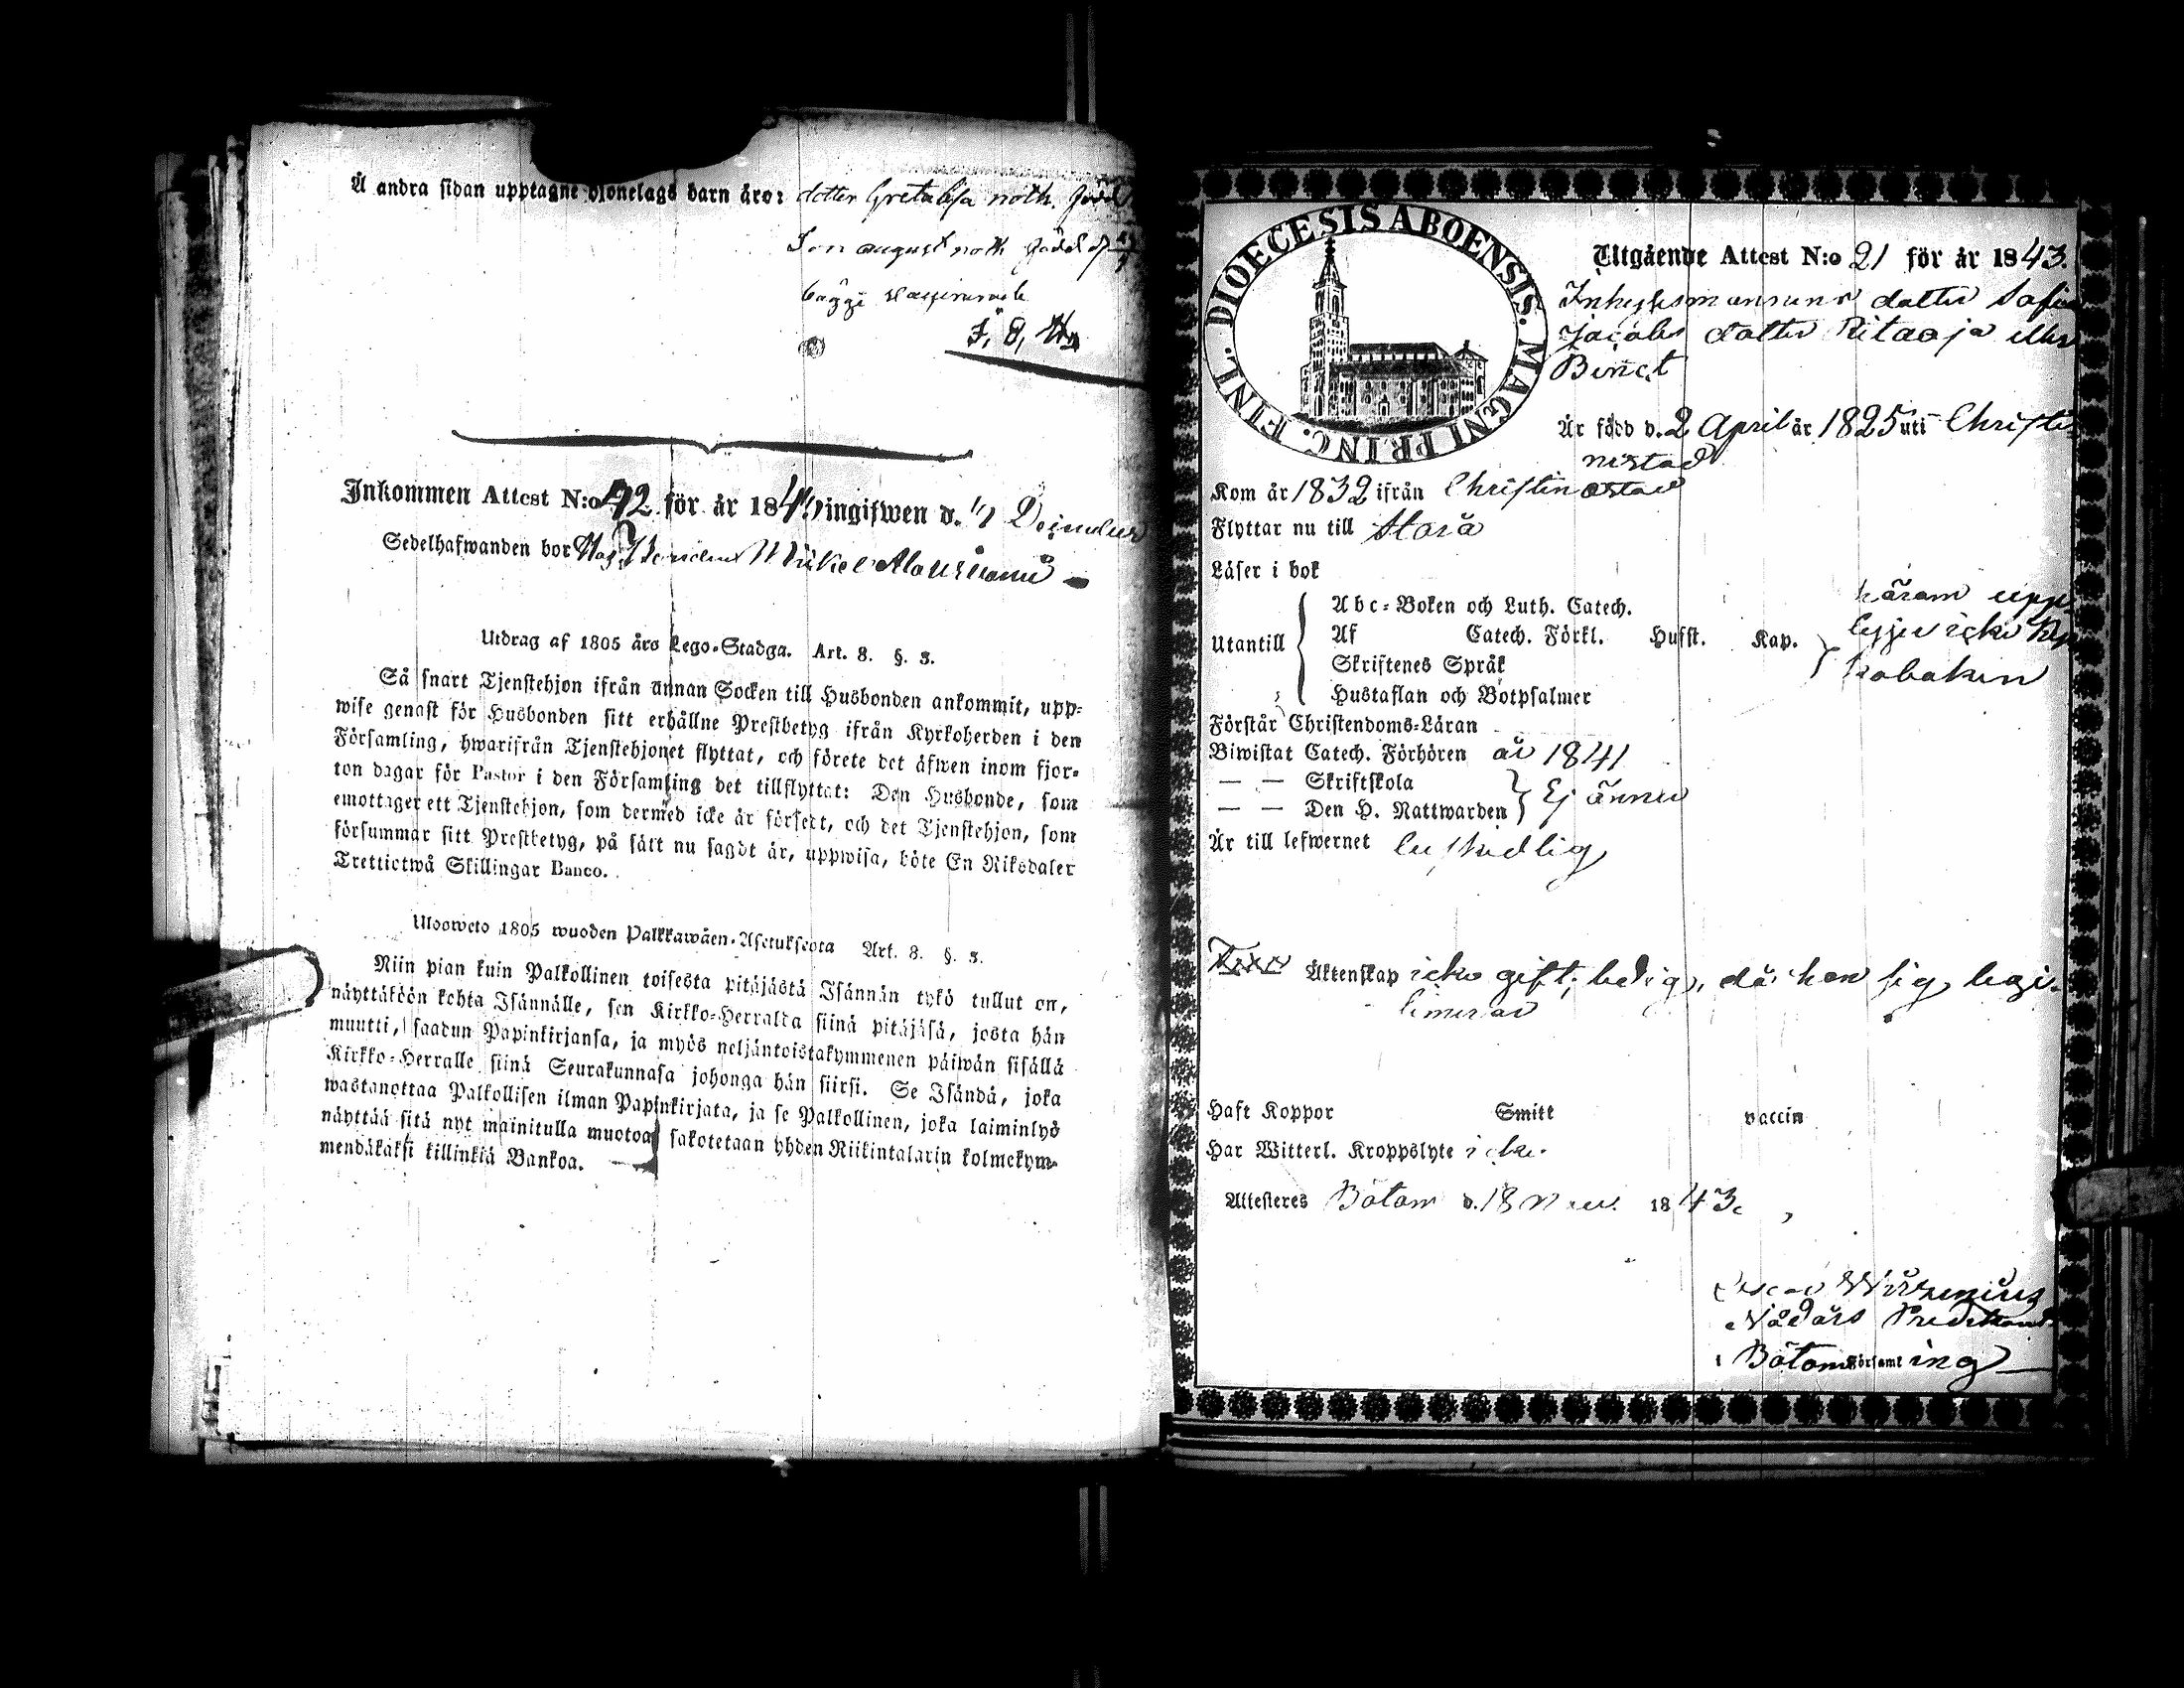 Å andra sidan upptagne Hjonelags barn äro: dotter Greta Lisa noth. född
Son august noth född d
bägge vaccinerade
Inkommen Attest N:o 42 för år 184 ingifwen d.
Sedelhafwanden bor Mickel
Utdrag af 1805 års Lego-Stadga. Art. 8. §. 3.
Så snart Tjenstehjon ifrån annan Socken till Husbonden ankommit, upp-
wise genast för Husbonden sitt erhållne Prestbetyg ifrån Kyrkoherden i den
Församling, hwarifrån Tjenstehjonet flyttat, och förete det äfwen inom fjor-
ton dagar för Pastor i den Församling det tillflyttat: Den Husbonde, som
emottager ett Tjenstehjon, som dermed icke är försedt, och det Tjenstehjon, som
försummar sitt Prestbetyg, på sätt nu sagdt är, uppwisa, böte En Riksdaler
Trettiotwå Skillingar Banco.
Ulosweto 1805 wuoden Palkkawäen-Asetuksesta Art. 8. §. 3.
Niin pian kuin Palkollinen toisesta pitäjästä Isännän tykö tullut on,
näyttäköön kohta Isännälle, sen Kirkko-Herralda siinä pitäjäsä, josta hän
muutti, saadun Papinkirjansa, ja myös neljäntoistakymmenen päiwän sisällä
Kirkko-Herralle siinä Seurakunnasa johonga hän siirsi. Se Isändä, joka
wastanottaa Palkollisen ilman Papinkirjata, ja se Palkollinen, joka laiminlyö
näyttää sitä nyt mainitulla muotoa, sakotetaan yhden Riikintalarin kolmekym-
mendäkaksi killinkiä Bankoa.
DIOECESIS ABOENSIS. MAGNI PRINC. FINL.
Utgående Attest N:o 21 för år 1843.
Inhysesmansens dotter Sofia
Jacobs dotter Ritaoja eller
Är född d. 2 April år 1825 uti Christi-
nestad
Kom år 1832 ifrån Christinestad
Flyttar nu till Storå
Läser i bok
Abc-Boken och Luth. Catech.
Utantill Af Catech. Förkl. Husst. Kap.
Skriftenes Språk
Hustaflan och Botpsalmer
Förstår Christendoms-Läran
Biwistat Catech. Förhören år 1841
— — Skriftskola
— — Den H. Nattwarden } Ej ännu
Är till lefwernet beskedlig
Äktenskap icke gift; ledig, då hon sig legi-
timerar
Haft Koppor Smitt vaccin
Har Witterl. Kroppslyte icke.
Attesteres Bötom d. 18 Nov. 1843.
Wirzenius
Nådårs Predikant
i Bötom Församl ing